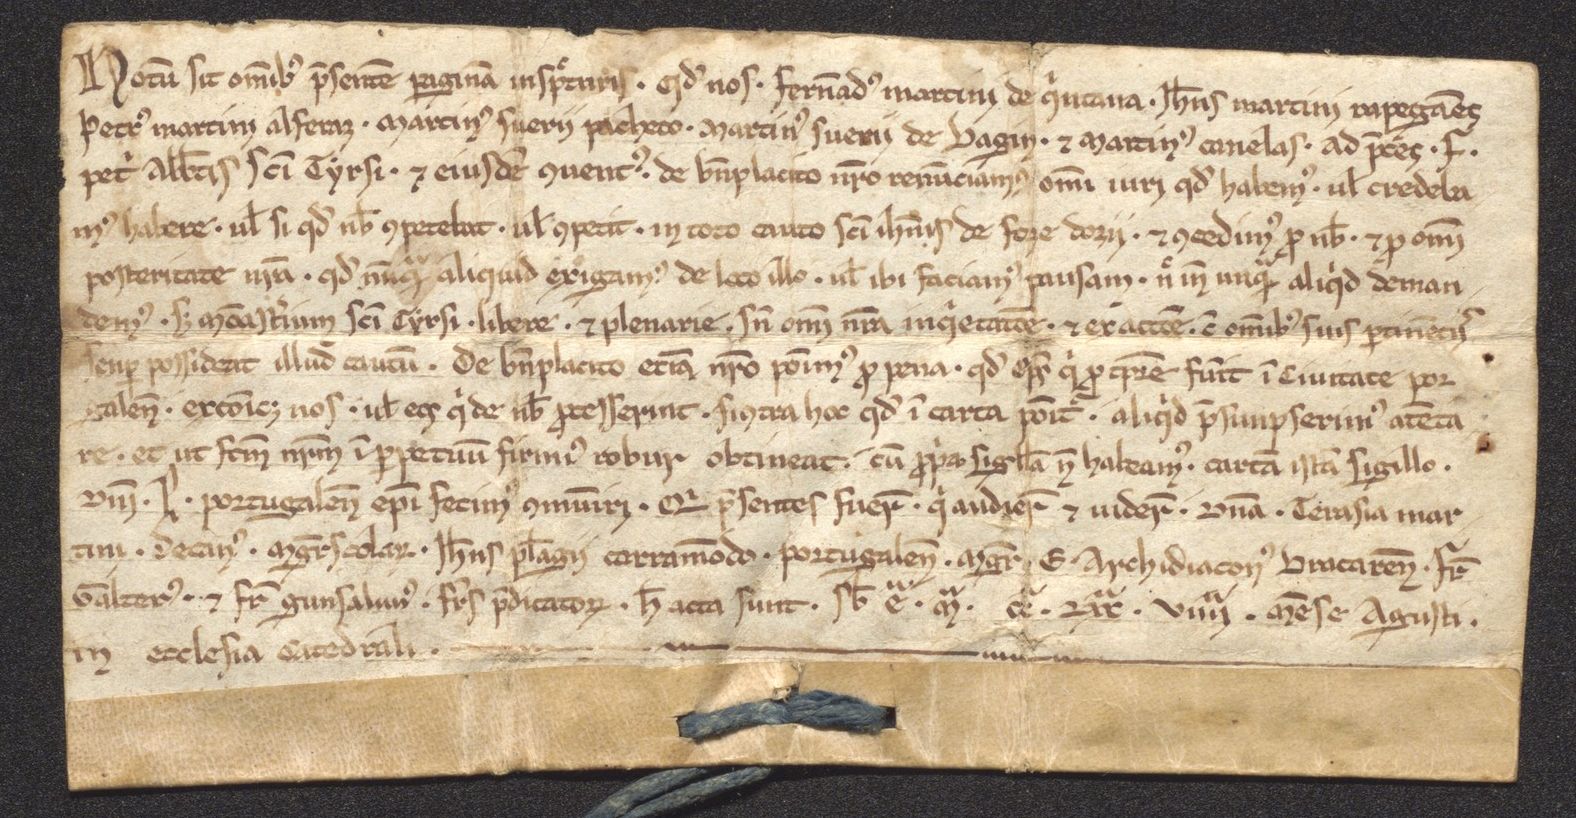 Notū sit om̄ibꝰ p̄sentē paginā inspꝯturis · qd̕ nos · fernādꝰ martini de qi̓ntana · Ioh̄s martini rapegaēs
Petrꝰ martini alferaz · Martinꝰ suerii pacheco · Martinꝰ suerii de Vagin · ⁊ Martinꝰ canelas · ad p̄ces · F ·
pet̓ Abb̄tis sc̄i Tyrsi · ⁊ eiusdē ꝯuentꝰ · de bn̄placito nr̄o renūciamꝰ om̄i iuri qd̕ habemꝰ · ul̄ credeba
mꝰ habere · ul̄ si qd̕ nb̄ ꝯpetebat · ul̄ ꝯpetit · in toto cauto sc̄i ioh̄nis de foze dorii · ⁊ ꝯcedimꝰ ꝓ nb̄ · ⁊ ꝓ om̄i
posteritate nr̄a · qd̕ nūqᵃ aliquid exigamꝰ de loco illo · ul̄ ibi faciamꝰ pausam · n̄ in unqᵃ aliqi̓d deman
demꝰ · sꝫ monast̓ium sc̄i Tyrsi · libere · ⁊ plenarie · sn̄ om̄i nr̄a inqi̓etatōe · ⁊ exactōe · c̄ om̄ibꝰ suis ꝑtinētiis
semꝑ possideat illud cautū · De bn̄placito etiā nr̄o poīmꝰ ꝓ pena · qd̕ ep̄s qi̓ ꝓ tp̄re fuīt ī Ciuitate por
galen̄ · excōīcꝫ nos · ul̄ eos qi̓ de nb̄ ꝓcesserint · si ꝯtra hoc qd̕ ī carta poīt̓ · aliqi̓d p̄sumpserimꝰ atēta
re · et ut fc̄m nr̄m ī ꝑpetuū firmiꝰ robur obtineat · cū ꝓpi̓a sigilla n̄ habeamꝰ · cartā istā sigillo ·
Dn̄i · P · portugalen̄ ep̄i fecimꝰ ꝯmuniri · Qi̓ p̄sentes fuer̄t · qi̓ audier̄t ⁊ uider̄t · Dn̄a · Tarasia mar
tini · Decanꝰ · Mgr̄scolarꝫ · Ioh̄s pelagii carramōdo · portugalen̄ · Mgr̄ · G · Archidiaconꝰ Bracaren̄ · fr̄
Galterꝰ · ⁊ fr̄ gunsaluiꝰ · fr̄s p̄dicatorꝫ · h̄ acta sunt · sb̄ Eᵃ · Mᵃ · ccᵃ · Lxxᵃ · viiiiᵃ · mēse Agusti ·
in ecclesia Catedrali ·